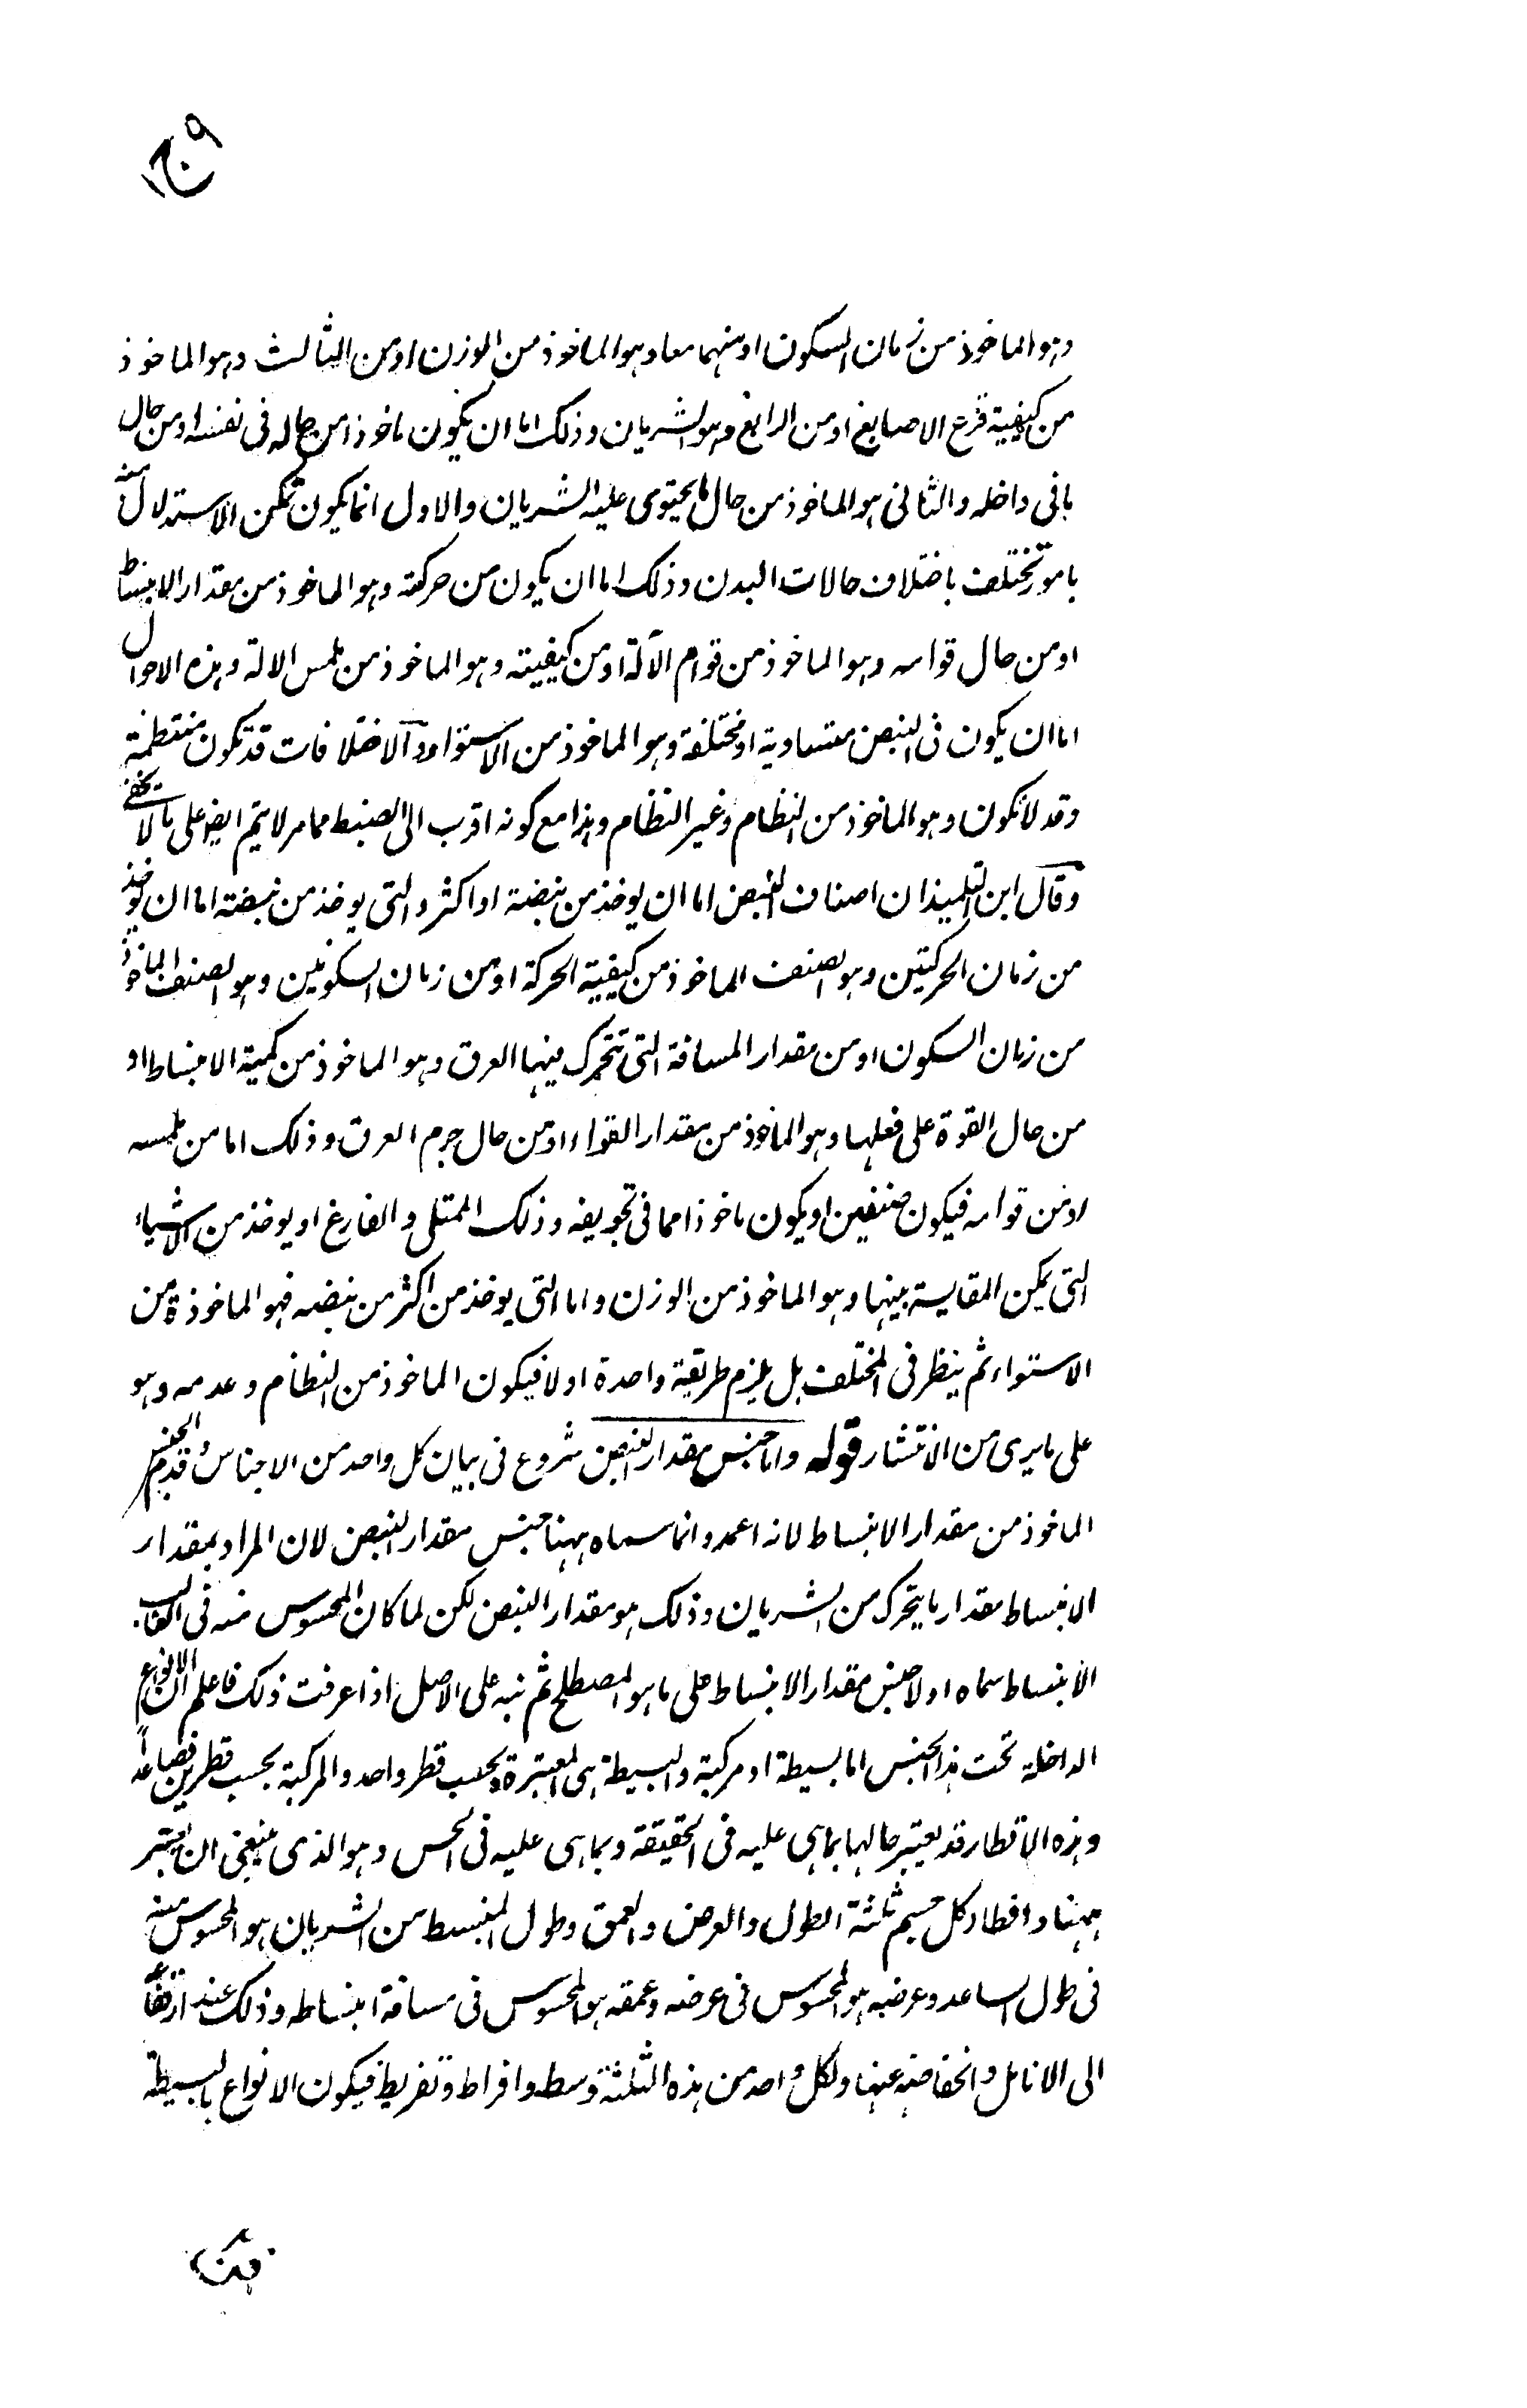 وهو الماخوذ من زمان السكون او منهما معا وهو الماخوذ من الوزن او من الثالث وهو الماخوذ
من كيفية قرع الاصابع او من الرابع وهو الشريان وذلك اما ان يكون ماخوذا من حاله فى نفسه او من حال
ما فى داخله والثانى هو الماخوذ من حال ما يحتوى عليه الشريان والاول انما يكون تمكن الاستدلال منه
بامور تختلف باختلاف حالات البدن وذلك اما ان يكون من حركته وهو الماخوذ من مقدار الانبساط
او من حال قوامه وهو الماخوذ من قوام الآلة او من كيفيته وهو الماخوذ من ملمس الالة وهذه الاحوال
اما ان يكون فى النبض متساوية او مختلفة وهو الماخوذ من الاستواء والاختلافات قد تكون منتظمة
وقد لا تكون وهو الماخوذ من النظام وغير النظام وهذا مع كونه اقرب الى الضبط مما مر لا يتم ايضا على ما لا يخفى
وقال ابن التلميذ ان اصناف النبض اما ان يوخذ من نبضة او اكثر والتى يوخذ من نبضة اما ان يوخذ
من زمان الحركتين وهو الصنف الماخوذ من كيفية الحركة او من زمان السكونين وهو الصنف الماخوذ
من زمان السكون او من مقدار المسافة التى تتحرك فيها العرق وهو الماخوذ من كمية الانبساط او
من حال القوة على فعلها وهو الماخوذ من مقدار القواء او من حال جرم العرق وذلك اما من ملمسه
او من قوامه فيكون صنفين او يكون ماخوذا مما فى تجويفه وذلك الممتلى والفارغ او يوخذ من الاشياء
التى يمكن المقايسة بينها وهو الماخوذ من الوزن واما التى يوخذ من اكثر من نبضه فهو الماخوذة من
الاستواء ثم ينظر فى المختلف بل يلزم طريقة واحدة اولا فيكون الماخوذ من النظام وعدمه وهو
على ما يرى من الانتشار قوله واما جنس مقدار النبض شروع فى بيان كل واحد من الاجناس وقدم الجنس
الماخوذ من مقدار الانبساط لانه اعمد وانما سماه ههنا جنس مقدار النبض لان المراد بمقدار
الانبساط مقدار ما يتحرك من الشريان وذلك هو مقدار النبض لكن لما كان المحسوس منه فى الغالب
الانبساط سماه اولا جنس مقدار الانبساط على ما هو المصطلح ثم نبه على الاصل اذا عرفت ذلك فاعلم ان الانواع
الداخلة تحت هذا الجنس اما بسيطة او مركبة والبسيطة هى المعتبرة بحسب قطر واحد والمركبة بحسب قطرين فصاعدا
وهذه الاقطار قد يعتبر حالها بما هى عليه فى الحقيقة وبما هى عليه فى الحس وهو الذى ينبغى ان يعتبر
ههنا واقطار كل جسم ثلثة الطول والعرض والعمق وطول المنبسط من الشريان هو المحسوس منه
فى طول الساعد وعرضه هو المحسوس فى عرضه وعمقه هو المحسوس فى مسافة انبساطه وذلك عند ارتفاعه
الى الانامل وانخفاضه عنها ولكل واحد من هذه الثلثة وسط وافراط وتفريط فيكون الانواع البسيطة